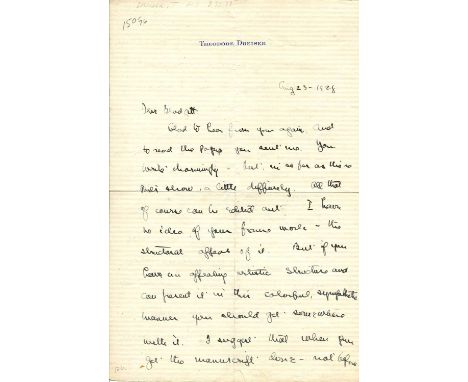 15096
THEODORE DREISER
Aug 23 - 1928
Dear
Glad to hear from you again. And
to read the pages you sent me. You
write charmingly - but in so far as this
show, a little diffusely. All that
of course can be edited out. I have
no idea of your frame work - the
structural appeal of it. But if you
have an appealing artistic structure and
can present it in this colorful, sympathetic
manner you should get somewhere
with it. I suggest that when you
get the manuscript done - not before